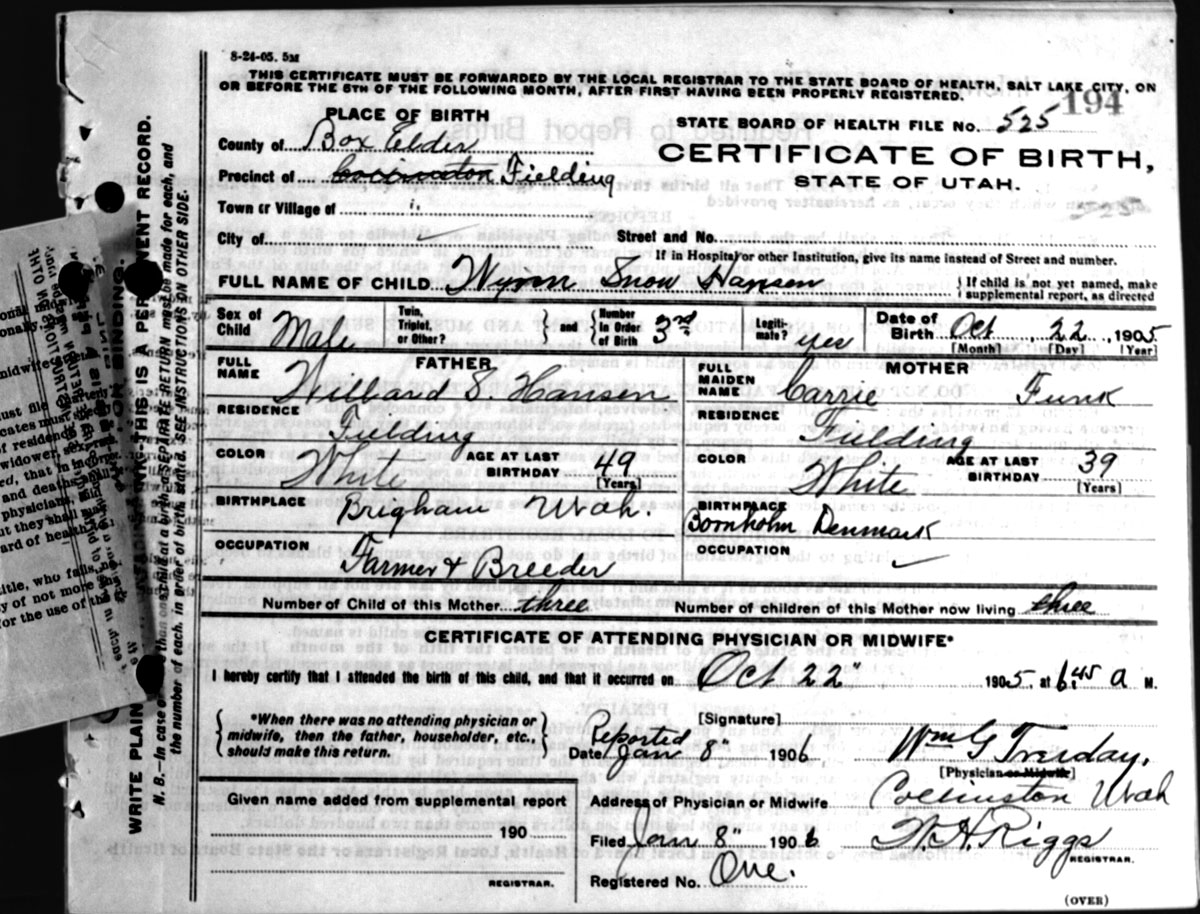 8-24-05. 5M
THIS CERTIFICATE MUST BE FORWARDED BY THE LOCAL REGISTRAR TO THE STATE BOARD OF HEALTH, SALT LAKE CITY, ON
OR BEFORE THE 5TH OF THE FOLLOWING MONTH, AFTER FIRST HAVING BEEN PROPERLY REGISTERED.
194
PLACE OF BIRTH
STATE BOARD OF HEALTH FILE NO. 525
County of Box Elder
CERTIFICATE OF BIRTH,
Precinct of Collinston Fielding
STATE OF UTAH.
Town or Village of "
525
City of
Street and No.
If in Hospital or other Institution, give its name instead of Street and number.
FULL NAME OF CHILD Wynn Snow Hansen
{ If child is not yet named, make
supplemental report, as directed
Sex of Child Male
Twin, Triplet, or Other?
} and { Number in Order of Birth 3rd
Legiti-mate? yes
Date of Birth Oct 22, 1905
[Month] [Day] [Year]
FATHER
MOTHER
FULL NAME Willard S. Hansen
FULL MAIDEN NAME Carrie Funk
RESIDENCE Fielding
RESIDENCE Fielding
COLOR White AGE AT LAST BIRTHDAY 49 [Years]
COLOR White AGE AT LAST BIRTHDAY 39 [Years]
BIRTHPLACE Brigham Utah.
BIRTHPLACE Bornholm Denmark
OCCUPATION Farmer & Breeder
OCCUPATION
Number of Child of this Mother three
Number of children of this Mother now living three
CERTIFICATE OF ATTENDING PHYSICIAN OR MIDWIFE*
I hereby certify that I attended the birth of this child, and that it occurred on Oct 22" 1905, at 6:45 a M.
{ *When there was no attending physician or
midwife, then the father, householder, etc.,
should make this return. }
[Signature]
Reported
Date Jan 8" 1906
Wm G
[Physician or Midwife]
Address of Physician or Midwife Collinston Utah
Given name added from supplemental report
190
REGISTRAR.
Filed Jan 8" 1906 W. H. Riggs
REGISTRAR.
Registered No. One.
(OVER)
WRITE PLAIN
THIS IS A PERMANENT RECORD.
N. B.—In case
than one child at a birth, a SEPARATE RETURN must be made for each, and
the number of each, in order of birth, stated. SEE INSTRUCTIONS ON OTHER SIDE.